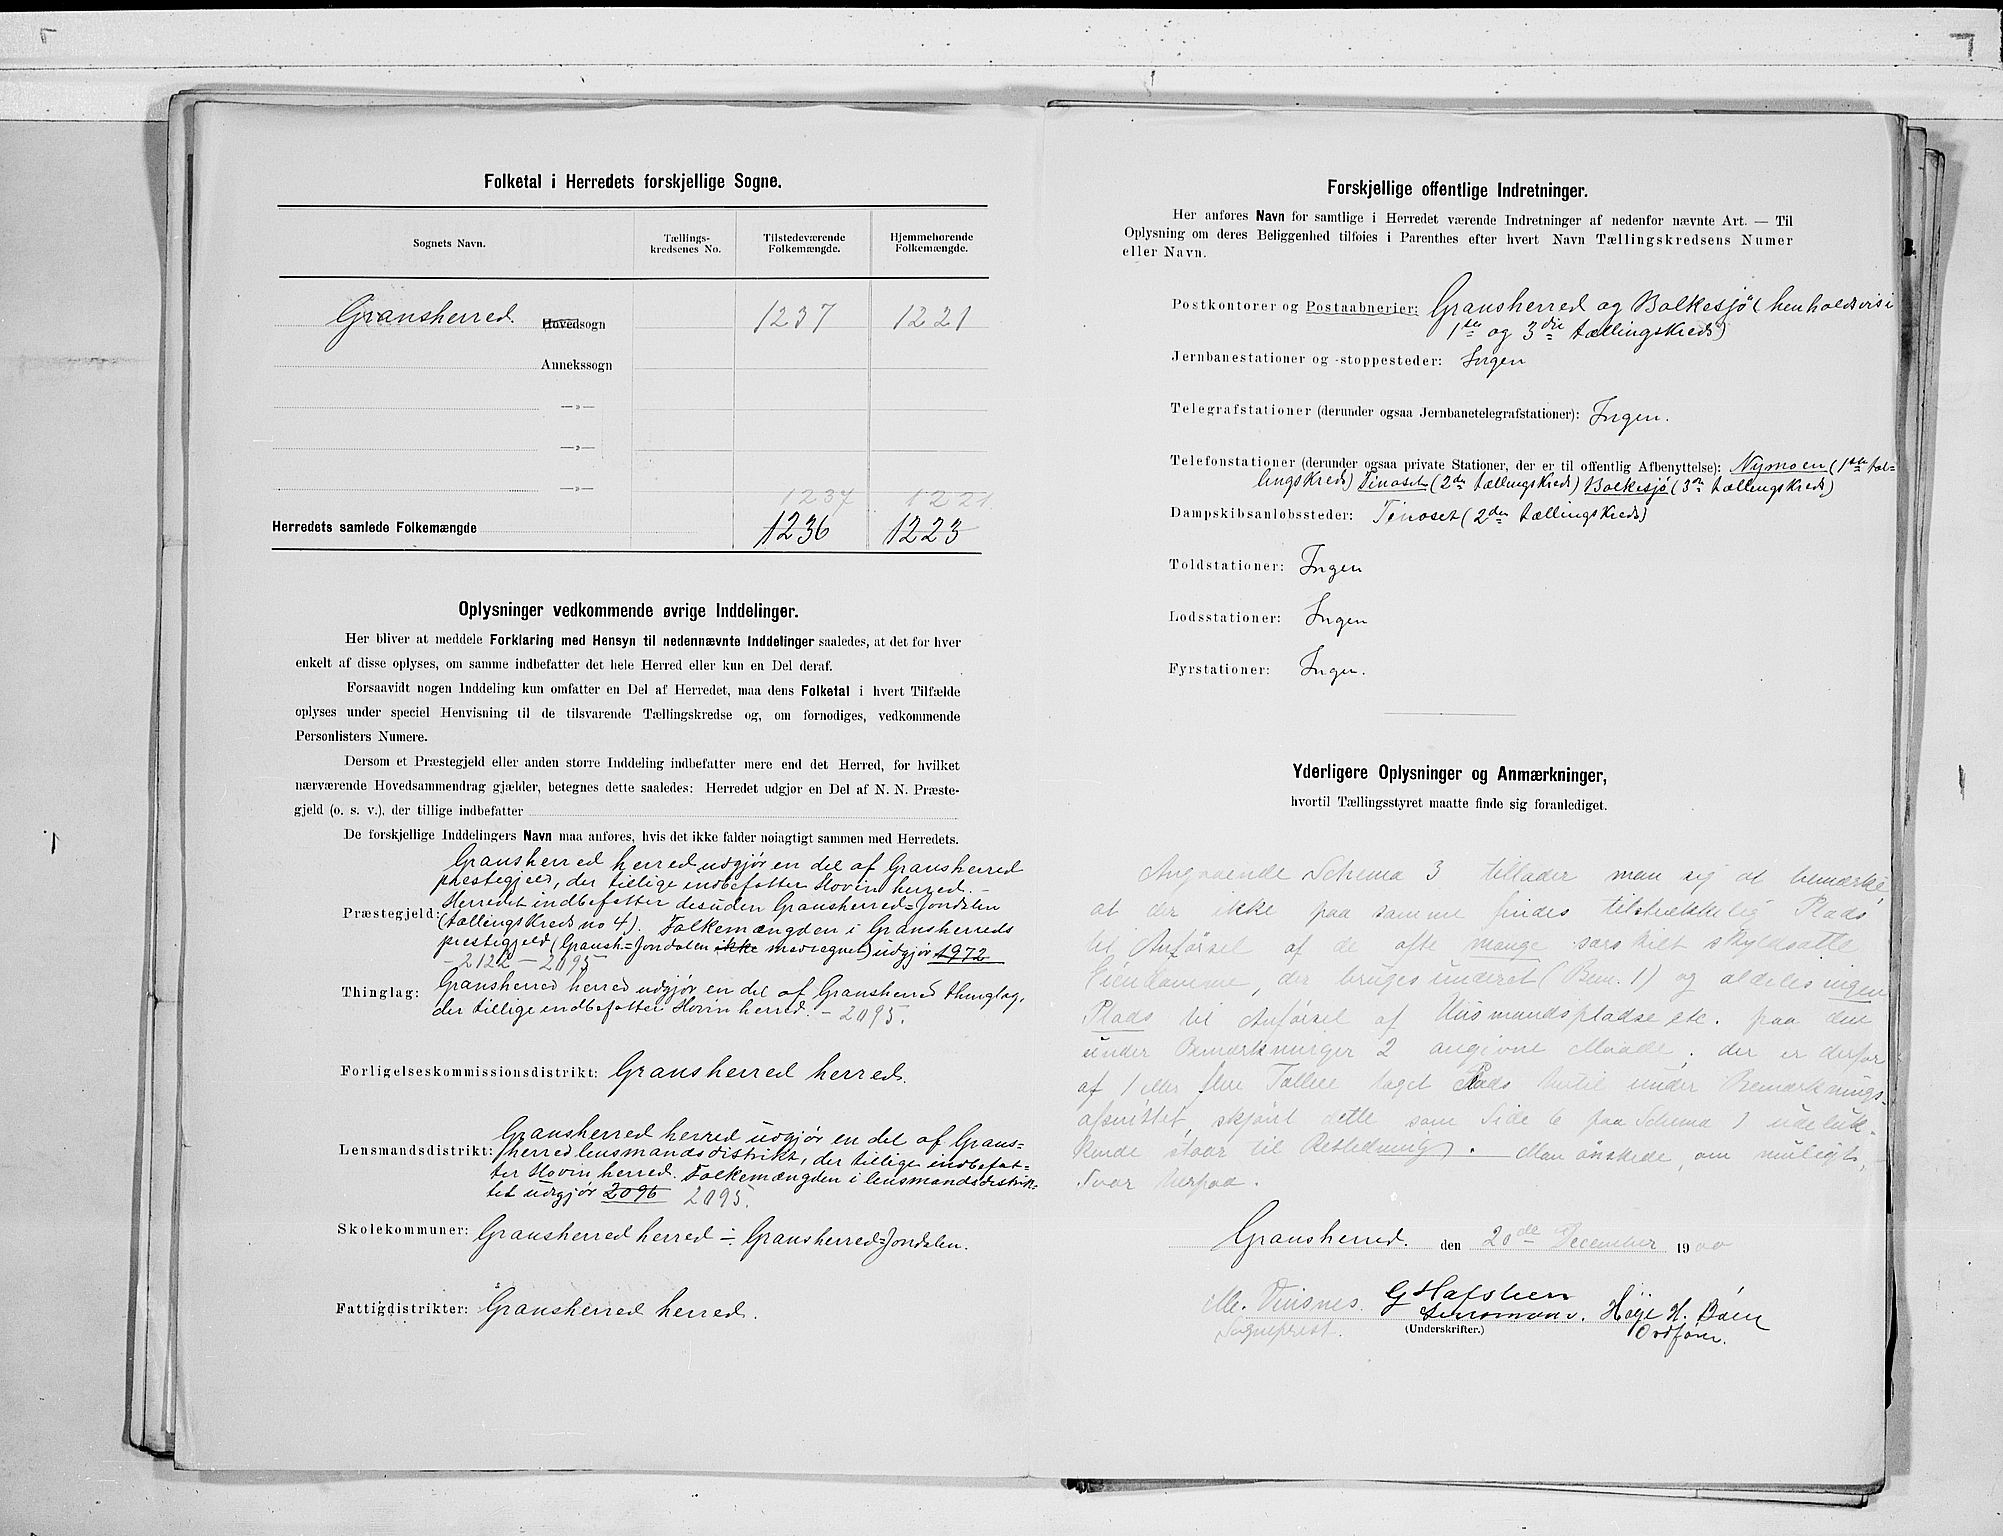 Folketal i Herredets forskjellige Sogne.
Sognets Navn. Tællings-kredsenes No. Tilstedeværende Folkemængde. Hjemmehørende Folkemængde.
Gransherred. Hovedsogn 1237 1221
Annekssogn
—»—
—»—
—»—
1237 1221
Herredets samlede Folkemængde 1236 1223
Oplysninger vedkommende øvrige Inddelinger.
Her bliver at meddele Forklaring med Hensyn til nedennævnte Inddelinger saaledes, at det for hver
enkelt af disse oplyses, om samme indbefatter det hele Herred eller kun en Del deraf.
Forsaavidt nogen Inddeling kun omfatter en Del af Herredet, maa dens Folketal i hvert Tilfælde
oplyses under speciel Henvisning til de tilsvarende Tællingskredse og, om fornødiges, vedkommende
Personlisters Numere.
Dersom et Præstegjeld eller anden større Inddeling indbefatter mere end det Herred, for hvilket
nærværende Hovedsammendrag gjælder, betegnes dette saaledes: Herredet udgjør en Del af N. N. Præste-
gjeld (o. s. v.), der tillige indbefatter
De forskjellige Inddelingers Navn maa anføres, hvis det ikke falder nøiagtigt sammen med Herredets.
Gransherred herred udgjør en del af Gransherred
prestegjeld, der tillige indbefatter Hovin herred. –
Herredet indbefatter desuden Gransherred=Jondalen
Præstegjeld: (tællingskreds no 4). Folkemængden i Gransherreds
prestegjeld (Gransh.=Jondalen ikke medregnet) udgjør 1972
– 2122 – 2095
Thinglag: Gransherred herred udgjør en del af Gransherred thinglag,
der tillige indbefatter Hovin herred. – 2095.
Forligelseskommissionsdistrikt: Gransherred herred.
Gransherred herred udgjør en del af Grans=
Lensmandsdistrikt: herred lensmandsdistrikt, der tillige indbefat=
ter Hovin herred. Folkemængden i lensmandsdistrik=
tet udgjør 2096 2095.
Skolekommuner: Gransherred herred ÷ Gransherred=Jondalen.
Fattigdistrikter: Gransherred herred.
Forskjellige offentlige Indretninger.
Her anføres Navn for samtlige i Herredet værende Indretninger af nedenfor nævnte Art. — Til
Oplysning om deres Beliggenhed tilføies i Parenthes efter hvert Navn Tællingskredsens Numer
eller Navn.
Postkontorer og Postaabnerier: Gransherred og Bolkesjø (henholdsvis i
1ste og 3die tællingskreds)
Jernbanestationer og -stoppesteder: Ingen
Telegrafstationer (derunder ogsaa Jernbanetelegrafstationer): Ingen.
Telefonstationer (derunder ogsaa private Stationer, der er til offentlig Afbenyttelse): Nymoen (1ste tæl=
lingskreds) Tinoset (2den tællingskreds) Bolkesjø (3die tællingskreds)
Dampskibsanløbssteder: Tinoset (2den tællingskreds)
Toldstationer: Ingen
Lodsstationer: Ingen
Fyrstationer: Ingen.
Yderligere Oplysninger og Anmærkninger,
hvortil Tællingsstyret maatte finde sig foranlediget.
Angaaende Schema 3 tillader man sig at bemærke
at der ikke paa samme findes tilstrækkelig Plads
til Anførsel af de ofte mange særskilt skyldsatte
Eiendomme, der bruges underet (Bem. 1) og aldeles ingen
Plads til Anførsel af Husmandspladse etc. paa den
under Bemærkninger 2 angivne Maade; der er derfor
af 1 eller flere Tællere taget Plads hertil under Bemærknings-
afsnittet, skjønt dette som Side 6 paa Schema 1 udeluk-
kende staar til Veiledning. Man ønskede, om muligt,
Svar herpaa.
Gransherred. den 20de December 1900
M. Vinsnes. G Hafsten Høje H. Bøen
Sogneprest. Lensmand. Ordfører.
(Underskrifter.)